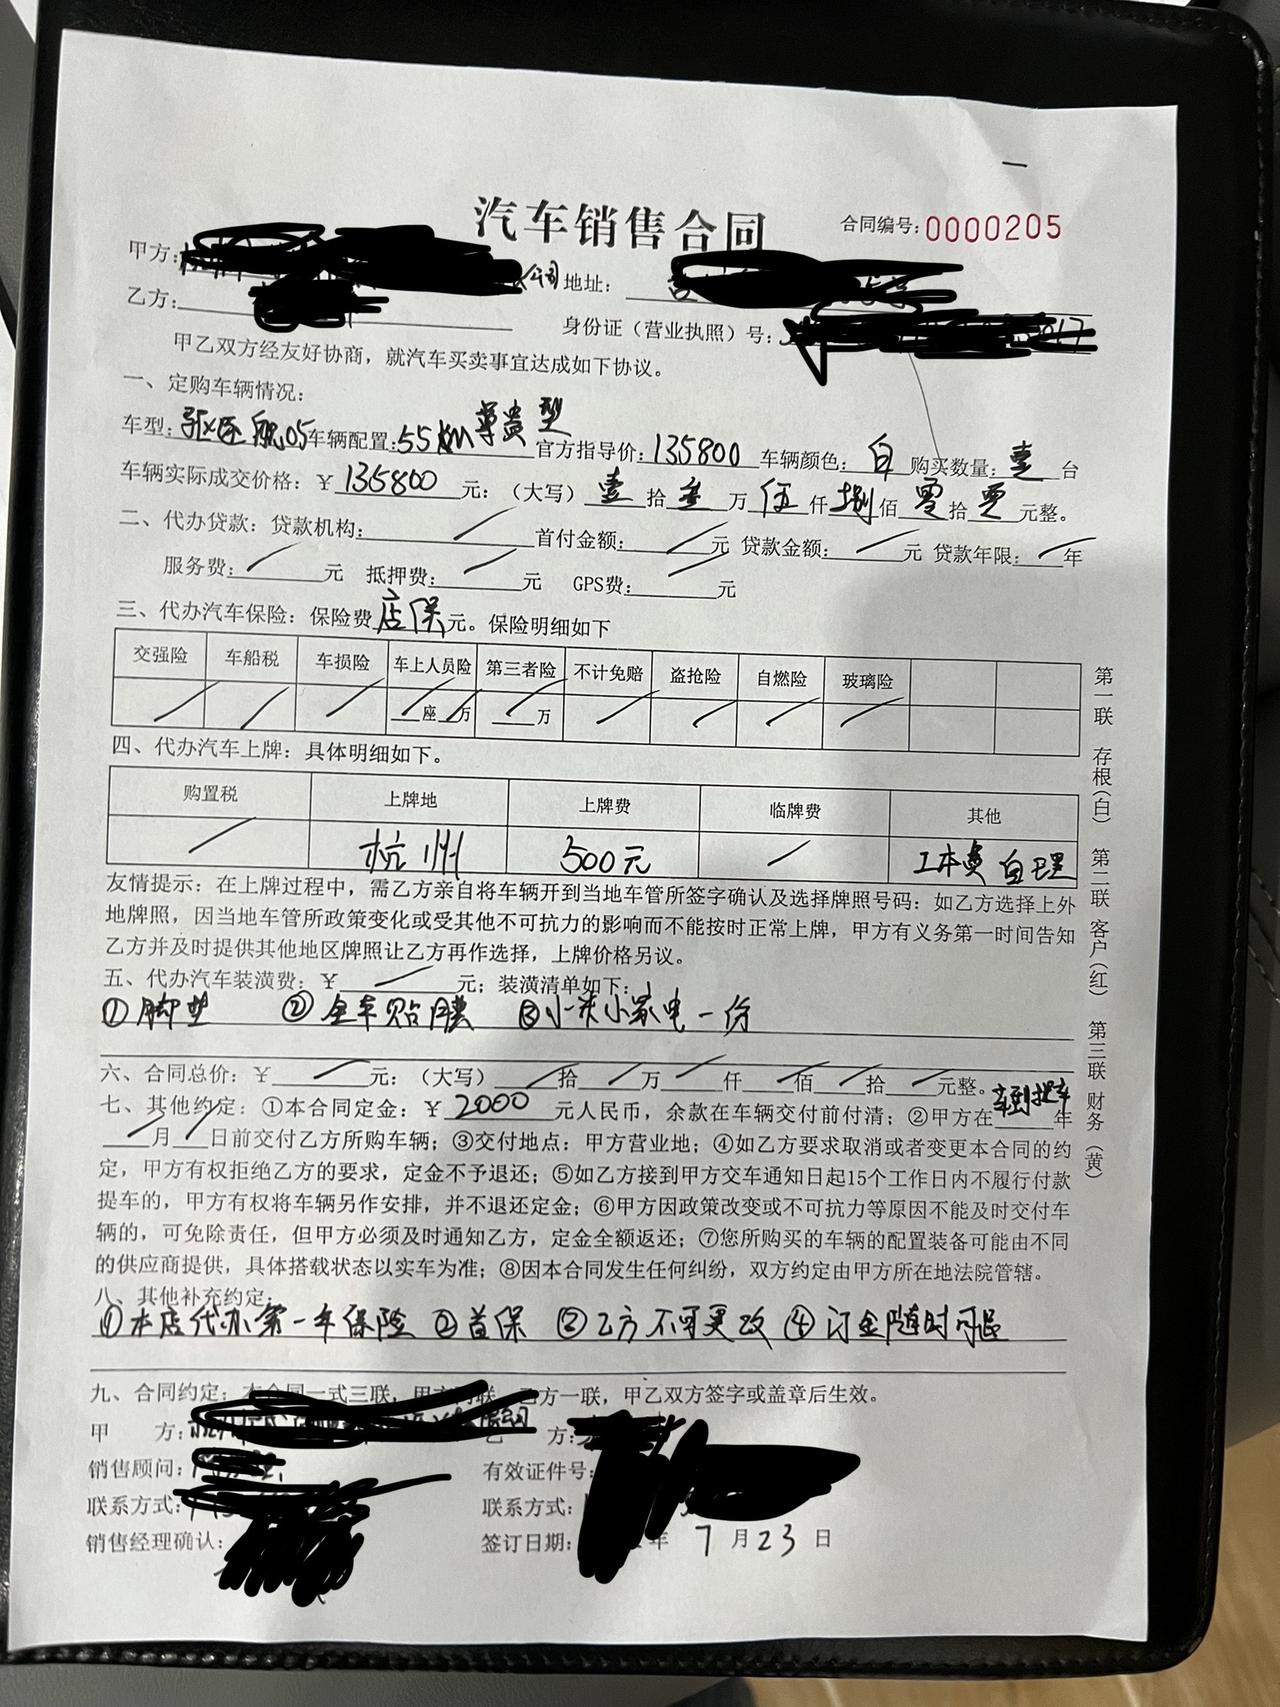 汽车销售合同
合同编号:0000205
甲方: 公司 地址:
乙方: 身份证（营业执照）号: 017
甲乙双方经友好协商，就汽车买卖事宜达成如下协议。
一、定购车辆情况:
车型:驱逐舰05 车辆配置:55km尊贵型 官方指导价:135800 车辆颜色:白 购买数量:壹 台
车辆实际成交价格: ¥ 135800 元:（大写）壹 拾 叁 万 伍 仟 捌 佰 零 拾 零 元整。
二、代办贷款: 贷款机构: / 首付金额: / 元 贷款金额: / 元 贷款年限: / 年
服务费: / 元 抵押费: / 元 GPS费: / 元
三、代办汽车保险: 保险费 店保 元。保险明细如下
交强险 车船税 车损险 车上人员险 第三者险 不计免赔 盗抢险 自燃险 玻璃险
/ / / / 座 / 万 / 万 / / / /
四、代办汽车上牌: 具体明细如下。
购置税 上牌地 上牌费 临牌费 其他
/ 杭州 500元 / 工本费 自理
友情提示: 在上牌过程中，需乙方亲自将车辆开到当地车管所签字确认及选择牌照号码: 如乙方选择上外
地牌照，因当地车管所政策变化或受其他不可抗力的影响而不能按时正常上牌，甲方有义务第一时间告知
乙方并及时提供其他地区牌照让乙方再作选择，上牌价格另议。
五、代办汽车装潢费: ¥ / 元; 装潢清单如下:
①脚垫 ②全车贴膜 ③小米小家电一份
六、合同总价: ¥ / 元:（大写） / 拾 / 万 / 仟 / 佰 / 拾 / 元整。
七、其他约定: ①本合同定金: ¥ 2000 元人民币，余款在车辆交付前付清; ②甲方在 车到提车 年
/ 月 / 日前交付乙方所购车辆; ③交付地点: 甲方营业地; ④如乙方要求取消或者变更本合同的约
定，甲方有权拒绝乙方的要求，定金不予退还; ⑤如乙方接到甲方交车通知日起15个工作日内不履行付款
提车的，甲方有权将车辆另作安排，并不退还定金; ⑥甲方因政策改变或不可抗力等原因不能及时交付车
辆的，可免除责任，但甲方必须及时通知乙方，定金全额返还; ⑦您所购买的车辆的配置装备可能由不同
的供应商提供，具体搭载状态以实车为准; ⑧因本合同发生任何纠纷，双方约定由甲方所在地法院管辖。
八、其他补充约定:
①本店代办第一年保险 ②首保 ③乙方不可更改 ④订金随时可退
九、合同约定: 本合同一式三联，甲方两联，乙方一联，甲乙双方签字或盖章后生效。
甲 方: 乙 方:
销售顾问: 有效证件号:
联系方式: 联系方式:
销售经理确认: 签订日期: 年 7 月 23 日
第一联 存根(白) 第二联 客户(红) 第三联 财务(黄)